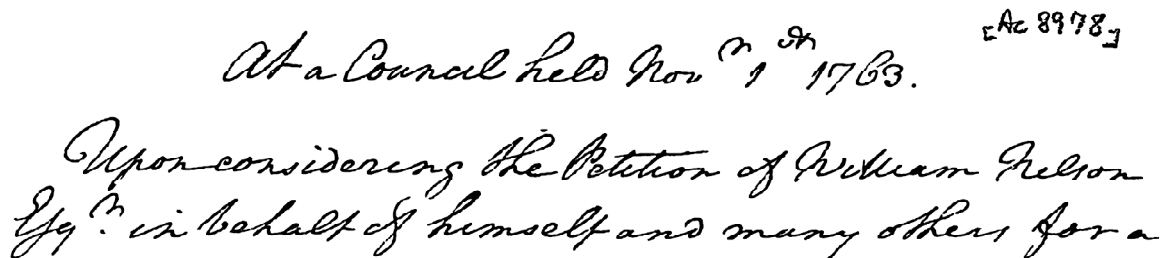 [Ac 8978]
At a Council held Novr 1st 1763.
Upon considering the Petition of William Nelson
Esqr. in behalf of himself and many others for a